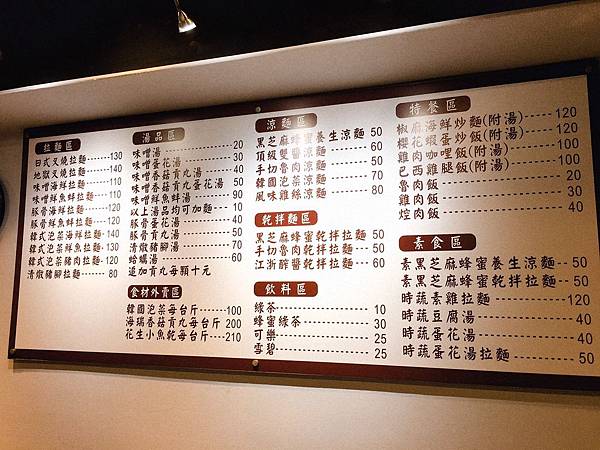 拉麵區
日式叉燒拉麵------130
地獄叉燒拉麵------120
味噌海鮮拉麵------110
味噌鮮魚蚌拉麵----110
豚骨海鮮拉麵------120
豚骨鮮魚蚌拉麵----120
韓式泡菜海鮮拉麵--140
韓式泡菜鮮魚拉麵--130
韓式泡菜豬肉拉麵--120
清燉豬腳拉麵------80
湯品區
味噌湯------20
味噌蛋花湯------30
味噌香菇貢丸湯------40
味噌香菇貢丸蛋花湯 50
味噌鮮魚湯------90
以上湯品均可加麵--10
豚骨蛋花湯------40
清燉豬腳湯------70
蛤蠣湯------60
追加貢丸每顆十元
食材外賣區
韓國泡菜每台斤------100
海瑞香菇貢丸每台斤 200
花生小魚乾每台斤---210
涼麵區
黑芝麻蜂蜜養生涼麵 50
頂級雙醬涼麵------60
手切魯肉涼麵------50
韓國泡菜涼麵------70
風味雞絲涼麵------80
乾拌麵區
黑芝麻蜂蜜乾拌拉麵 50
手切魯肉乾拌拉麵---50
江浙醡醬乾拌拉麵---60
飲料區
綠茶------10
蜂蜜綠茶------30
可樂------25
雪碧------25
特餐區
椒麻海鮮炒麵(附湯)------120
櫻花蝦蛋炒飯(附湯)------100
雞肉咖哩飯(附湯)------100
巴西雞腿飯(附湯)------100
魯肉飯------20
雞肉飯------30
焢肉飯------40
素食區
素黑芝麻蜂蜜養生涼麵--50
素黑芝麻蜂蜜乾拌拉麵--50
時蔬素雞拉麵------120
時蔬豆腐湯------40
時蔬蛋花湯------40
時蔬蛋花湯拉麵------50